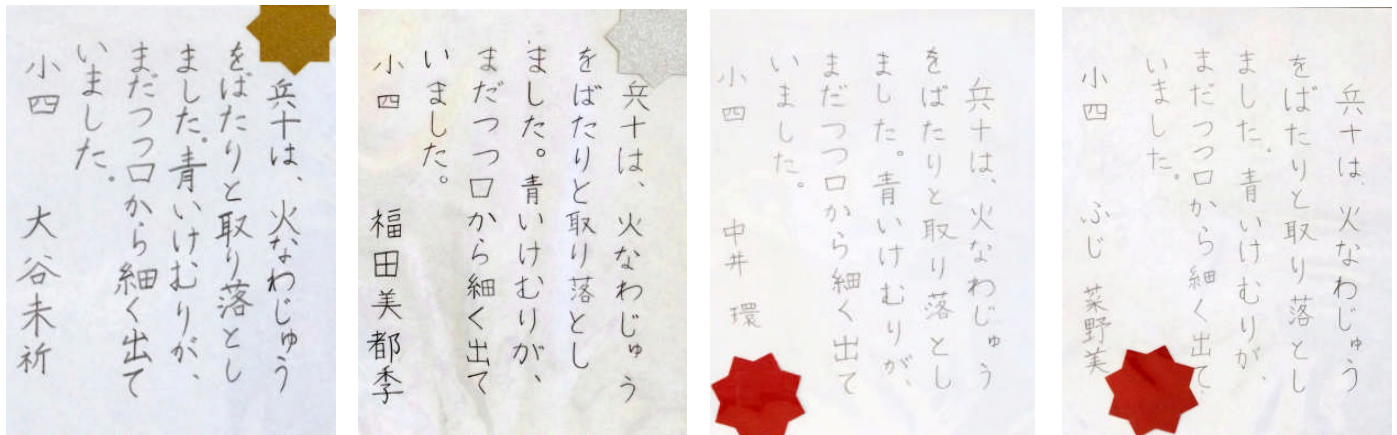 兵十は、火なわじゅう
をばたりと取り落とし
ました。青いけむりが、
まだつつ口から細く出て
いました。
小四 大谷未祈
兵十は、火なわじゅう
をばたりと取り落とし
ました。青いけむりが、
まだつつ口から細く出て
いました。
小四 福田美都季
兵十は、火なわじゅう
をばたりと取り落とし
ました。青いけむりが、
まだつつ口から細く出て
いました。
小四 中井 環
兵十は、火なわじゅう
をばたりと取り落とし
ました。青いけむりが、
まだつつ口から細く出て
いました。
小四 ふじ 菜野美